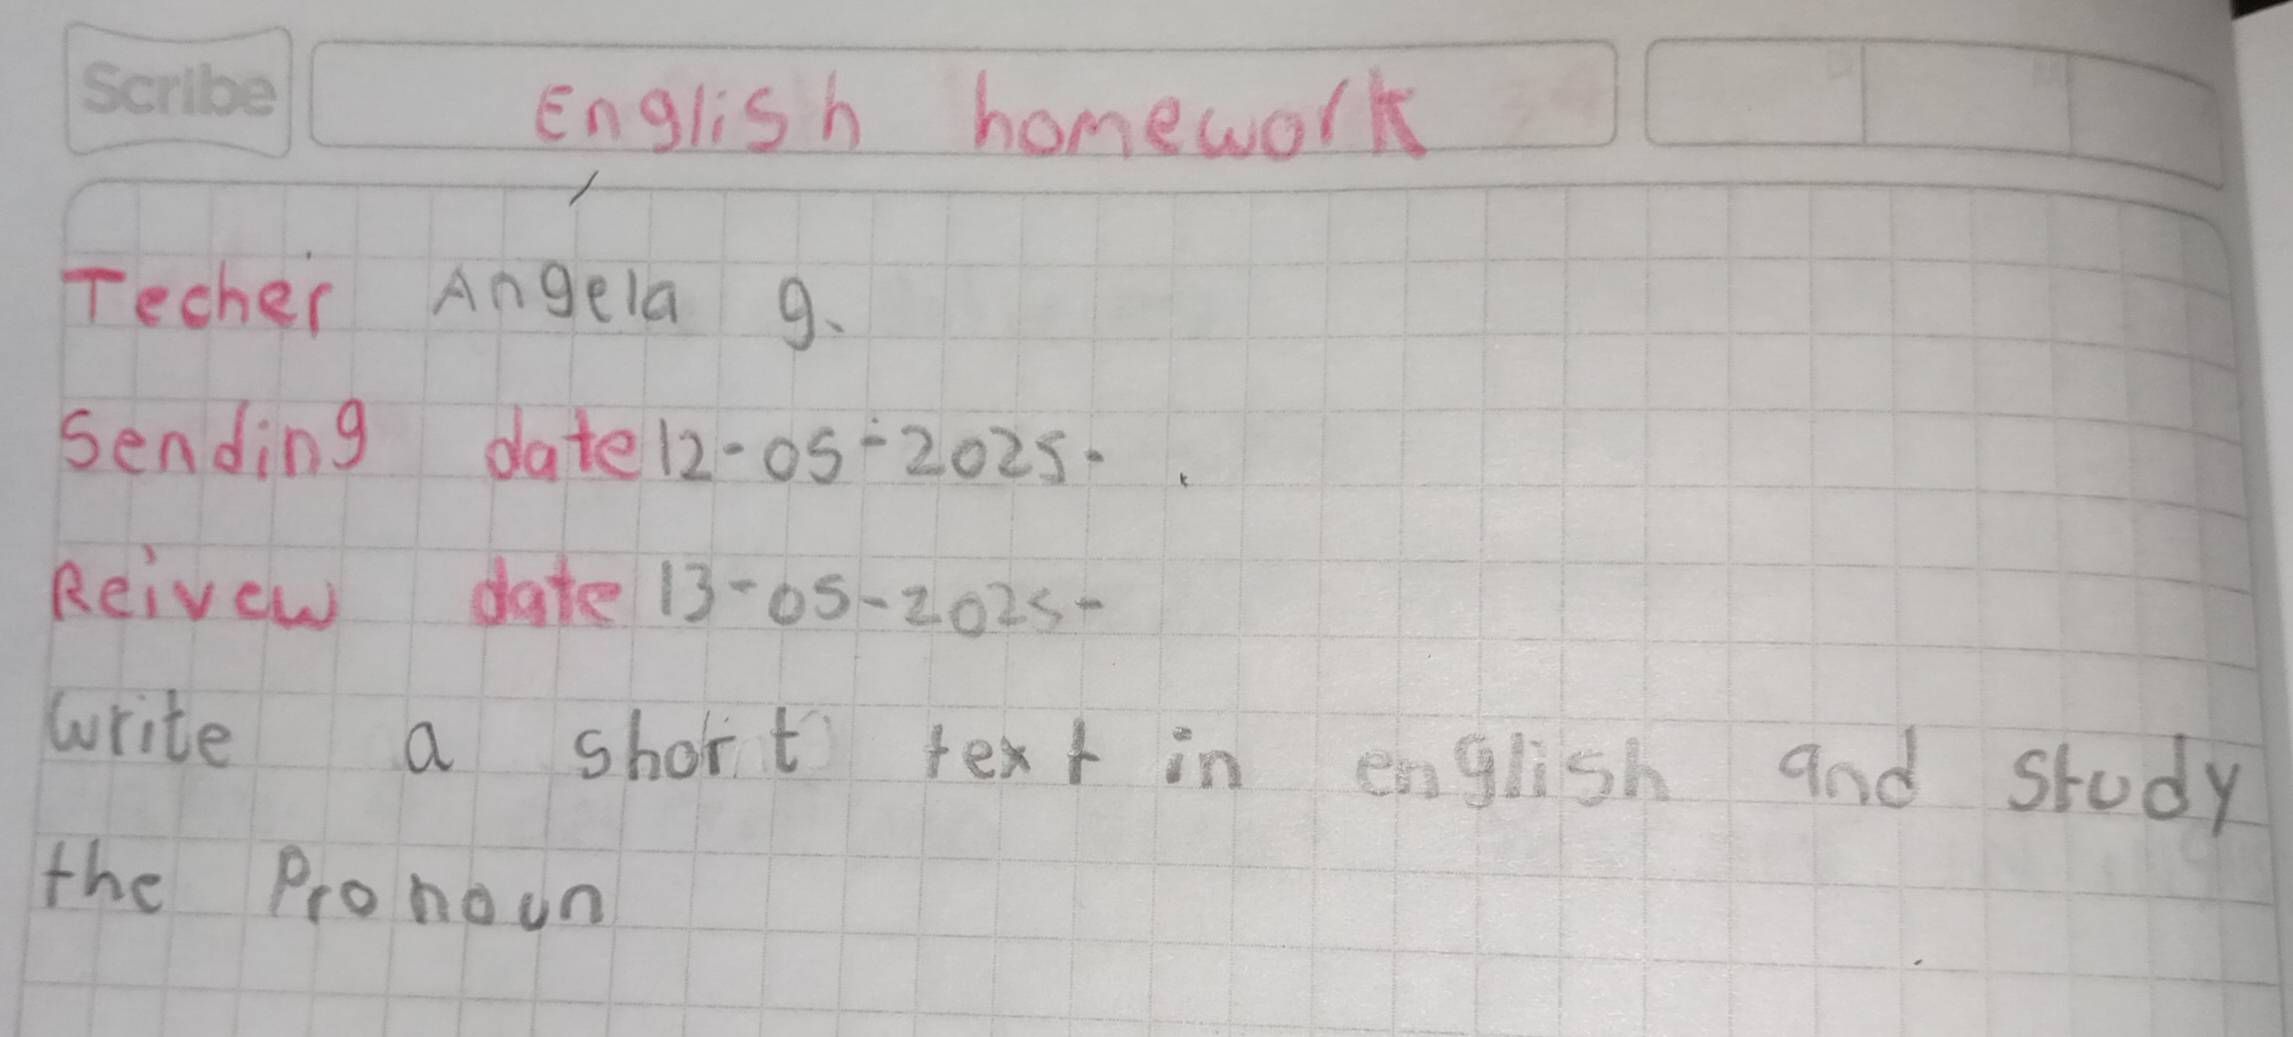 Scribe
English homework
Techer Angela g.
Sending date 12-05-2025-.
Reivew date 13-05-2025-
write a short text in english and study
the Pronoun